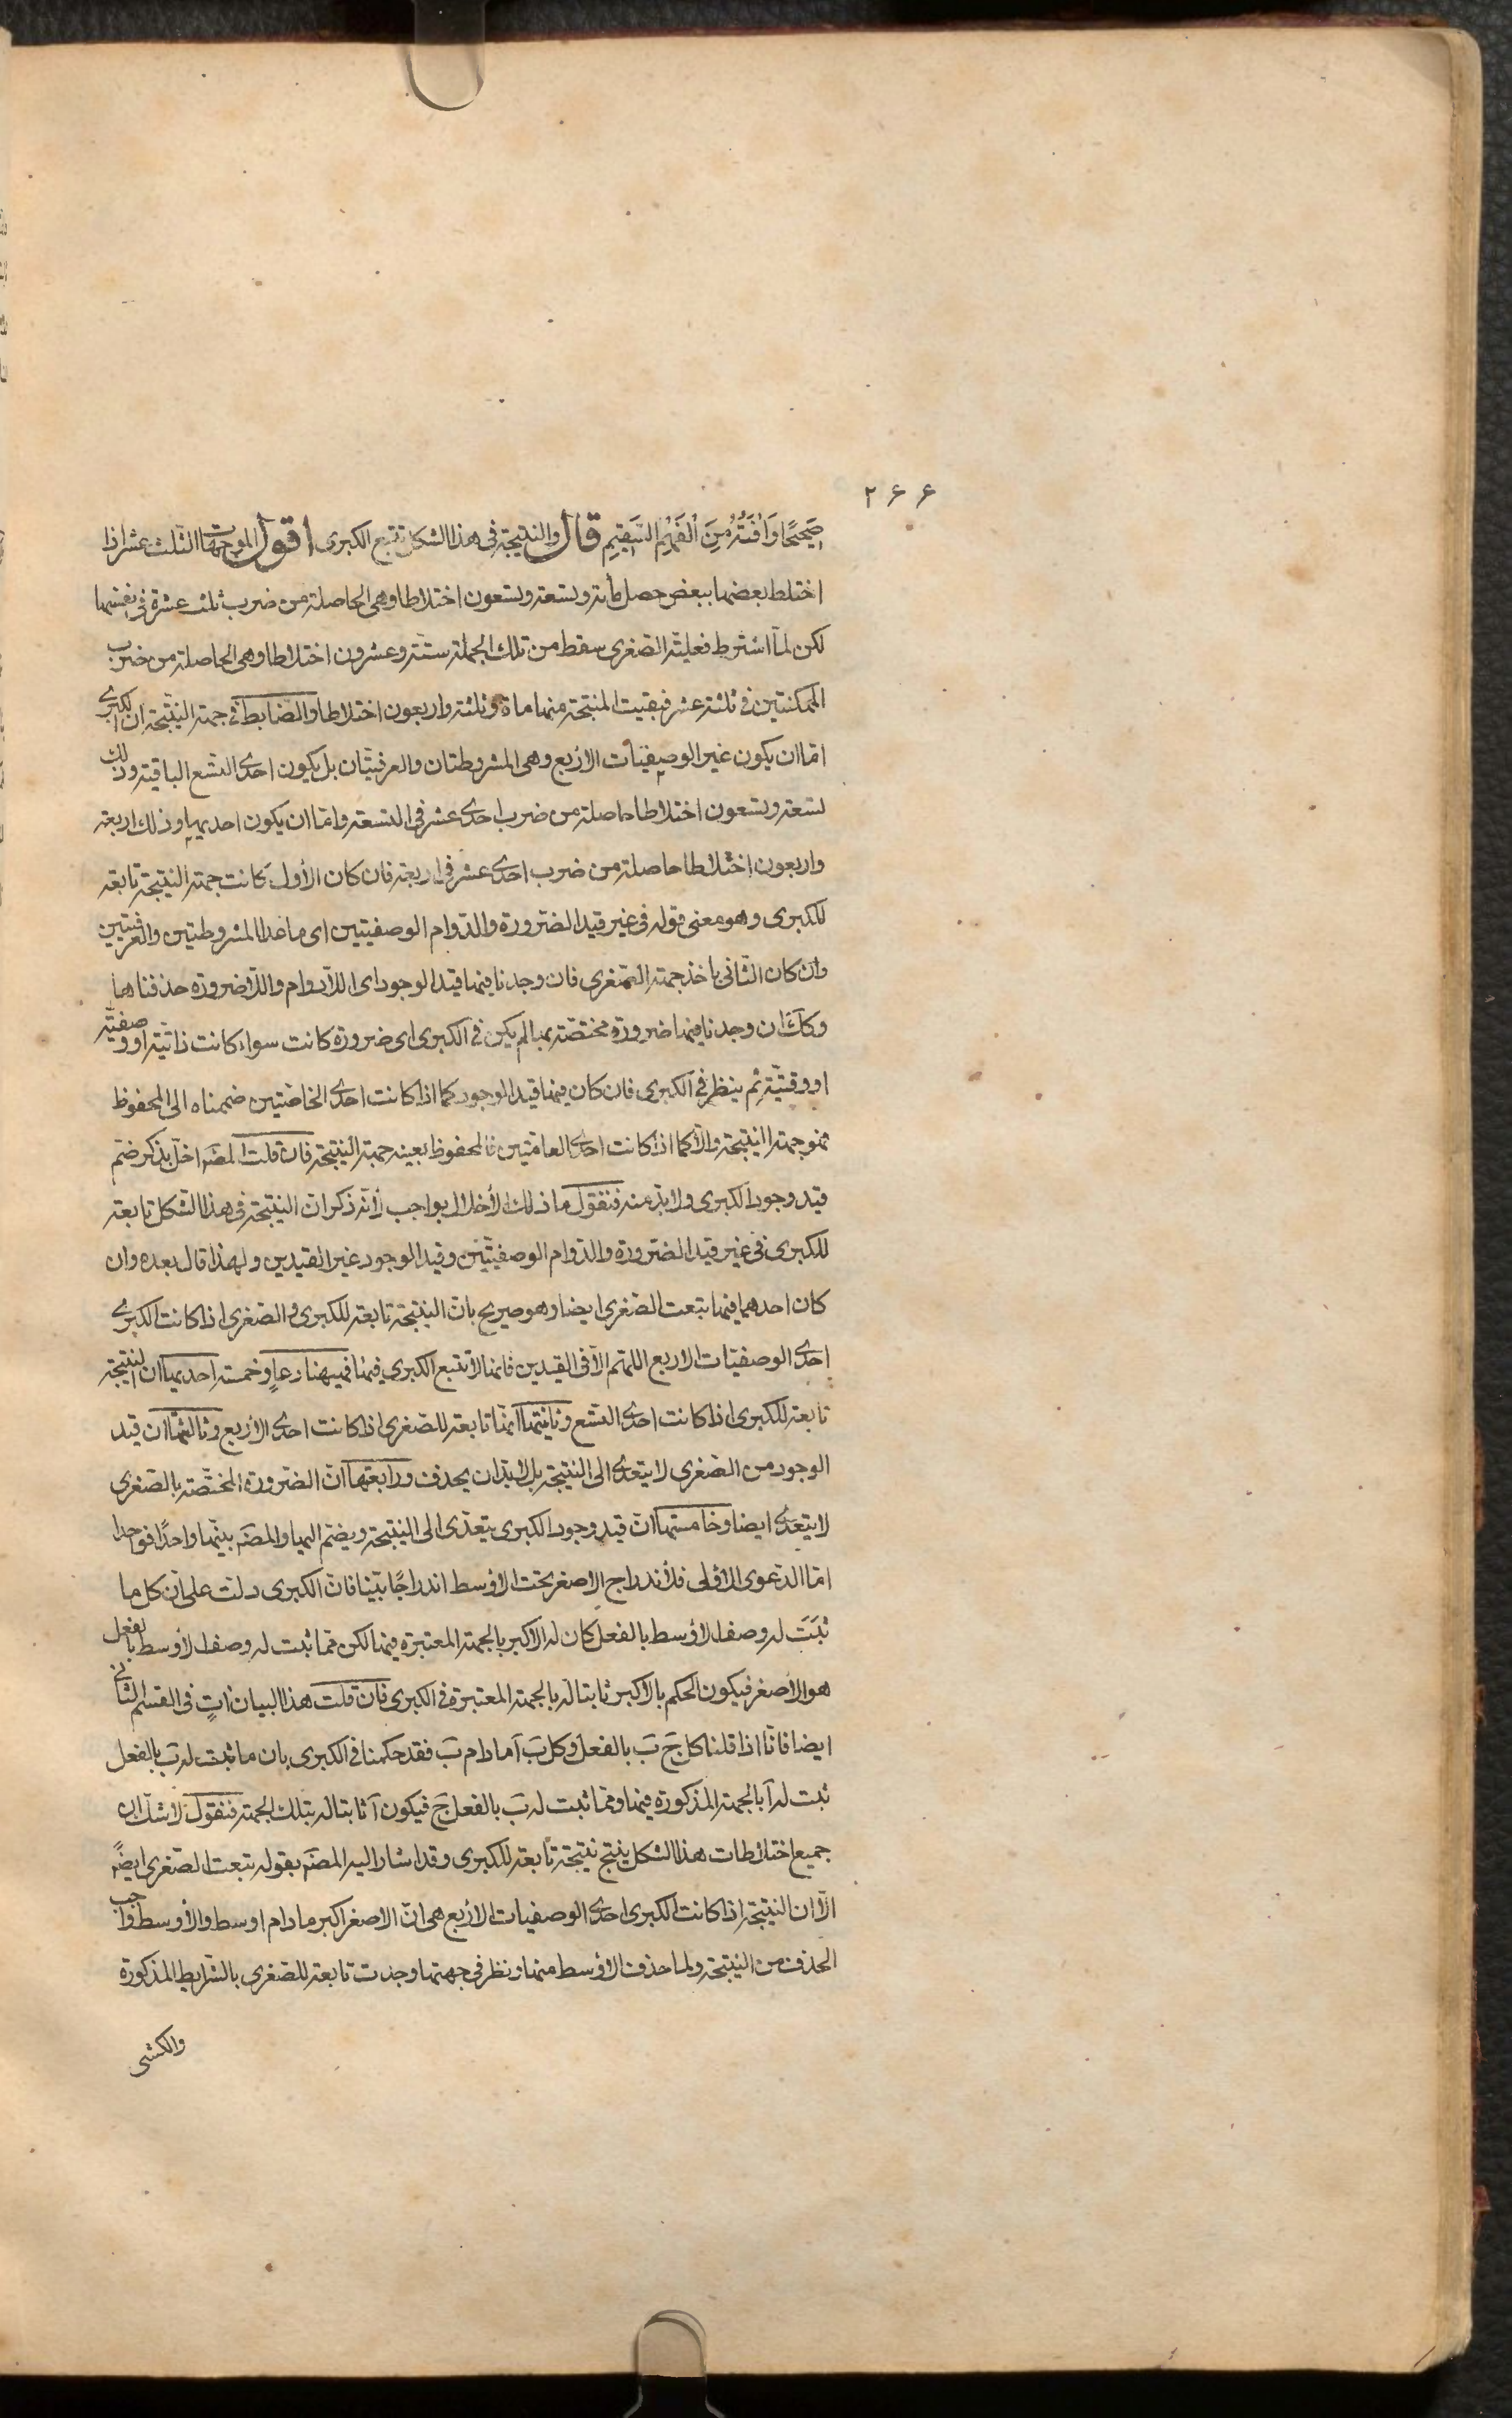 ٢۶۶
صَحيحًا وَآفَتُهُ مِنَ الْفَهْمِ السَّقِيمِ قال والنتيجة فى هذا الشكل تتبع الكبرى اقول الموجهات الثلث عشر اذا
اختلط بعضها ببعض حصل مأته وتسعة وتسعون اختلاطا وهى الحاصلة من ضرب ثلث عشرة فى نفسها
لكن لمّا اشترط فعليّة الصّغرى سقط من تلك الجملة ستّة وعشرون اختلاطا وهى الحاصلة من ضرب
الممكنتين فى ثلثة عشر فبقيت المنتجة منها ماة وثلثة واربعون اختلاطا والضابط فى جهة النتيجة ان الكبرى
امّا ان يكون غير الوصفيّات الاربع وهى المشروطتان والعرفيّتان بل يكون احدى التّسع الباقية وذلك
تسعة وتسعون اختلاطا حاصلة من ضرب احدى عشر فى التسعة وامّا ان يكون احديهما وذلك اربعة
واربعون اختلاطا حاصلة من ضرب احدى عشر فى اربعة فان كان الأول كانت جهة النتيجة تابعة
للكبرى وهو معنى قوله فى غير قيد الضّرورة والدّوام الوصفيّتين اى ما عدا المشروطتين والعرفيّتين
وان كان الثّانى ياخذ جهة الصّغرى فان وجدنا فيها قيد الوجود اى اللّادوام واللّاضرورة حذفناهما
وكك ان وجدنا فيها ضرورة مختصّة بها لم يكن فى الكبرى اى ضرورة كانت سواء كانت ذاتيّة او وصفيّة
او وقتيّة ثم ينظر فى الكبرى فان كان فيها قيد الوجود كما اذا كانت احدى الخاصّتين ضممناه الى المحفوظ
فهو جهة النتيجة والّا كما اذا كانت احدى العامّتين فالمحفوظ بعينه جهة النتيجة فان قلت المصَ اخلّ بذكر ضمّ
قيد وجود الكبرى ولابدّ منه فنقول ما ذلك الأخلال بواجب لأنّه ذكر ان النتيجة فى هذا الشكل تابعة
للكبرى فى غير قيد الضّرورة والدّوام الوصفيّتين وقيد الوجود غير القيدين ولهذا قال بعده وان
كان احدهما فيها تبعت الصّغرى ايضا وهو صريح بانّ النتيجة تابعة للكبرى والصّغرى اذا كانت الكبرى
احدى الوصفيّات الاربع اللّهمّ الّا فى القيدين فانها لا تتبع الكبرى فيهما فههنا دعاوٍ خمسة احديها ان النتيجة
تابعة للكبرى اذا كانت احدى التّسع وثانيتها انّها تابعة للصّغرى اذا كانت احدى الأربع وثالثتها ان قيد
الوجود من الصّغرى لا يتعدّى الى النتيجة بل لابدّ ان يحذف ورابعتها انّ الضّرورة المختصّة بالصّغرى
لا يتعدّى ايضا وخامستها انّ قيد وجود الكبرى يتعدّى الى النتيجة ويضمّ اليها والمصَ بيّنها واحدًا فواحدا
امّا الدّعوى الاولى فلأندراج الاصغر تحت الاوسط اندراجًا بيّنا فانّ الكبرى دلّت على انّ كل ما
ثَبَتَ له وصف الاوسط بالفعل كان له الاكبر بالجهة المعتبرة فيها لكن ممّا ثبت له وصف الأوسط بالفعل
هو الأصغر فيكون الحكم بالأكبر ثابتا له بالجهة المعتبرة فى الكبرى فان قلت هذا البيان اتٍ فى القسم الثانى
ايضا فانّا اذا قلنا كل جَ بَ بالفعل وكل بَ آ مادام بَ فقد حكمنا فى الكبرى بان ما ثبت له بَ بالفعل
ثبت له آ بالجهة المذكورة فيها وممّا ثبت له بَ بالفعل جَ فيكون آ ثابتا له بتلك الجهة فنقول لا شك ان
جميع اختلاطات هذا الشكل ينتج نتيجة تابعة للكبرى وقد اشار اليه المصَ بقوله تبعت الصّغرى ايضًا
الّا ان النتيجة اذا كانت الكبرى احدى الوصفيات الأربع هى انّ الاصغر اكبر مادام اوسط والأوسط واجب
الحذف من النتيجة ولما حذف الاوسط منها ونظر فى جهتها وجدت تابعة للصّغرى بالشرايط المذكورة
والكشى